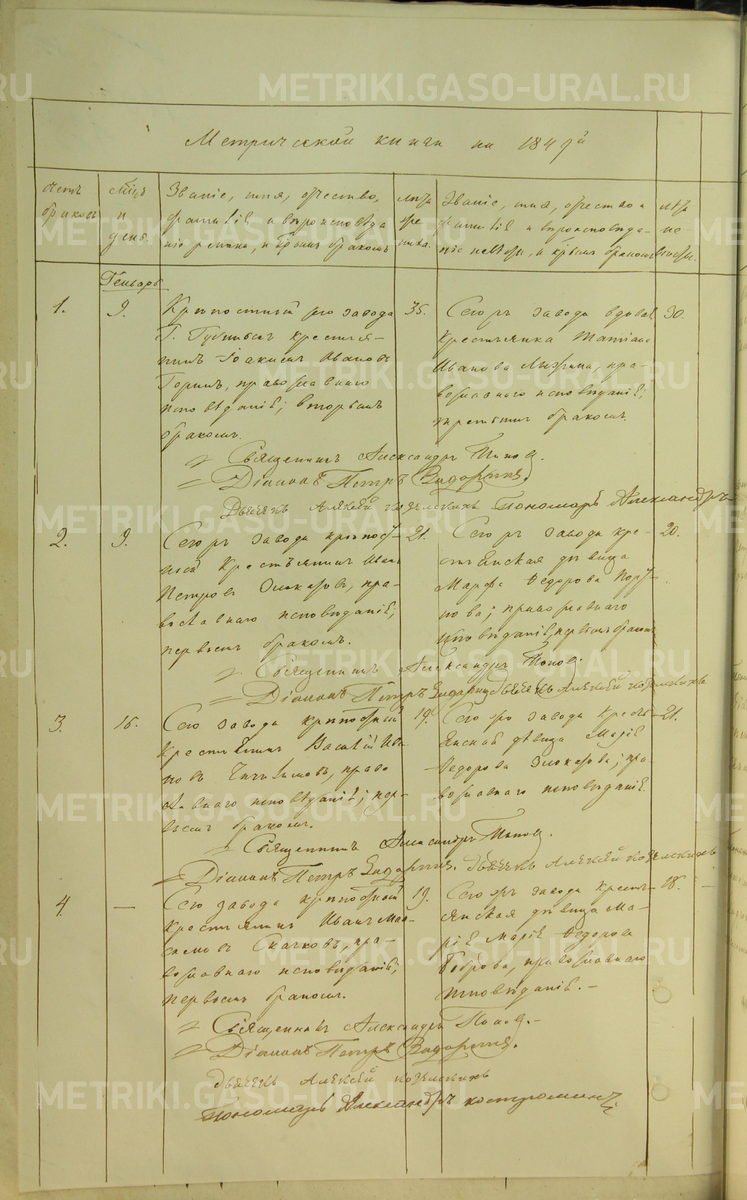 METRIKI.GASO-URAL.RU
Метрической книги на 1849й
Счетъ браковъ
Мѣсяцъ и день.
Званіе, имя, отчество, фамилія и вѣроисповѣданіе жениха, и которымъ бракомъ
лѣта жениха.
Званіе, имя, отчество и фамилія и вѣроисповѣданіе невѣсты, и которымъ бракомъ
лѣта невѣсты.
Генварь
1.
9.
Крѣпостный сего завода
Г. Губиныхъ крестья-
нинъ Іоакимъ Ивановъ
православнаго
исповѣданія; вторымъ
бракомъ.
35.
Сегожъ завода вдова
крестьянка Татіана
Иванова пра-
вославнаго исповѣданія;
третьимъ бракомъ.
30.
Священникъ Александръ Поповъ.
Діаконъ Петръ
Дьячекъ Алексѣй Пономарь Александръ
2.
9.
Сегожъ завода крѣпост-
ной крестьянинъ Иванъ
Петровъ пра-
вославнаго исповѣданія,
первымъ бракомъ.
21.
Сегожъ завода кре-
стьянская дѣвица
Марфа Ѳедорова
православнаго
исповѣданія, первымъ бракомъ
20.
Священникъ Александръ Поповъ.
Діаконъ Петръ Дьячекъ Алексѣй
3.
16.
Сего завода крѣпостный
крестьянинъ Василій Ива-
новъ право
славнаго исповѣданія; пер-
вымъ бракомъ.
19.
Сегожъ завода кресть-
янская дѣвица Марія
Ѳедорова пра-
вославнаго исповѣданія.
21.
Священникъ Александръ Поповъ.
Діаконъ Петръ Дьячекъ Алексѣй
4
—
Сего завода крѣпостный
крестьянинъ Иванъ Мак-
симовъ Скачковъ, пра-
вославнаго исповѣданія,
первымъ бракомъ.
19.
Сегожъ завода кресть-
янская дѣвица Ма-
рія Марія Ѳедорова
Боброва, православнаго
исповѣданія.—
18.
Священникъ Александръ Поповъ.—
Діаконъ Петръ
Дьячекъ Алексѣй
Пономарь Александръ Костроминъ